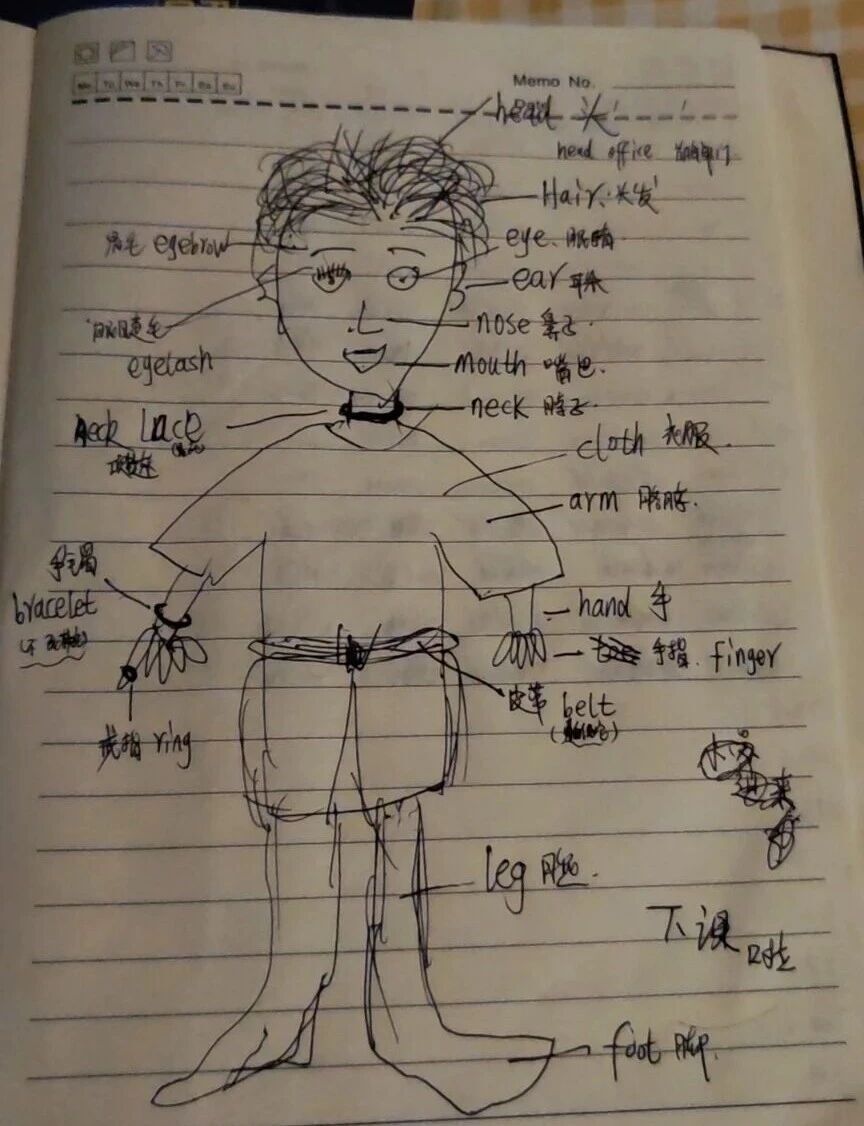 Mo Tu We Th Fr Sa Su
Memo No.
head 头
head office
Hair 头发
眉毛 eyebrow
eye 眼睛
ear 耳朵
眼睫毛
eyelash
nose 鼻子
mouth 嘴巴
neck 脖子
neck lace
cloth 衣服
arm 胳膊
bracelet
hand 手
手指 finger
皮带 belt
戒指 ring
leg 腿
下课
foot 脚